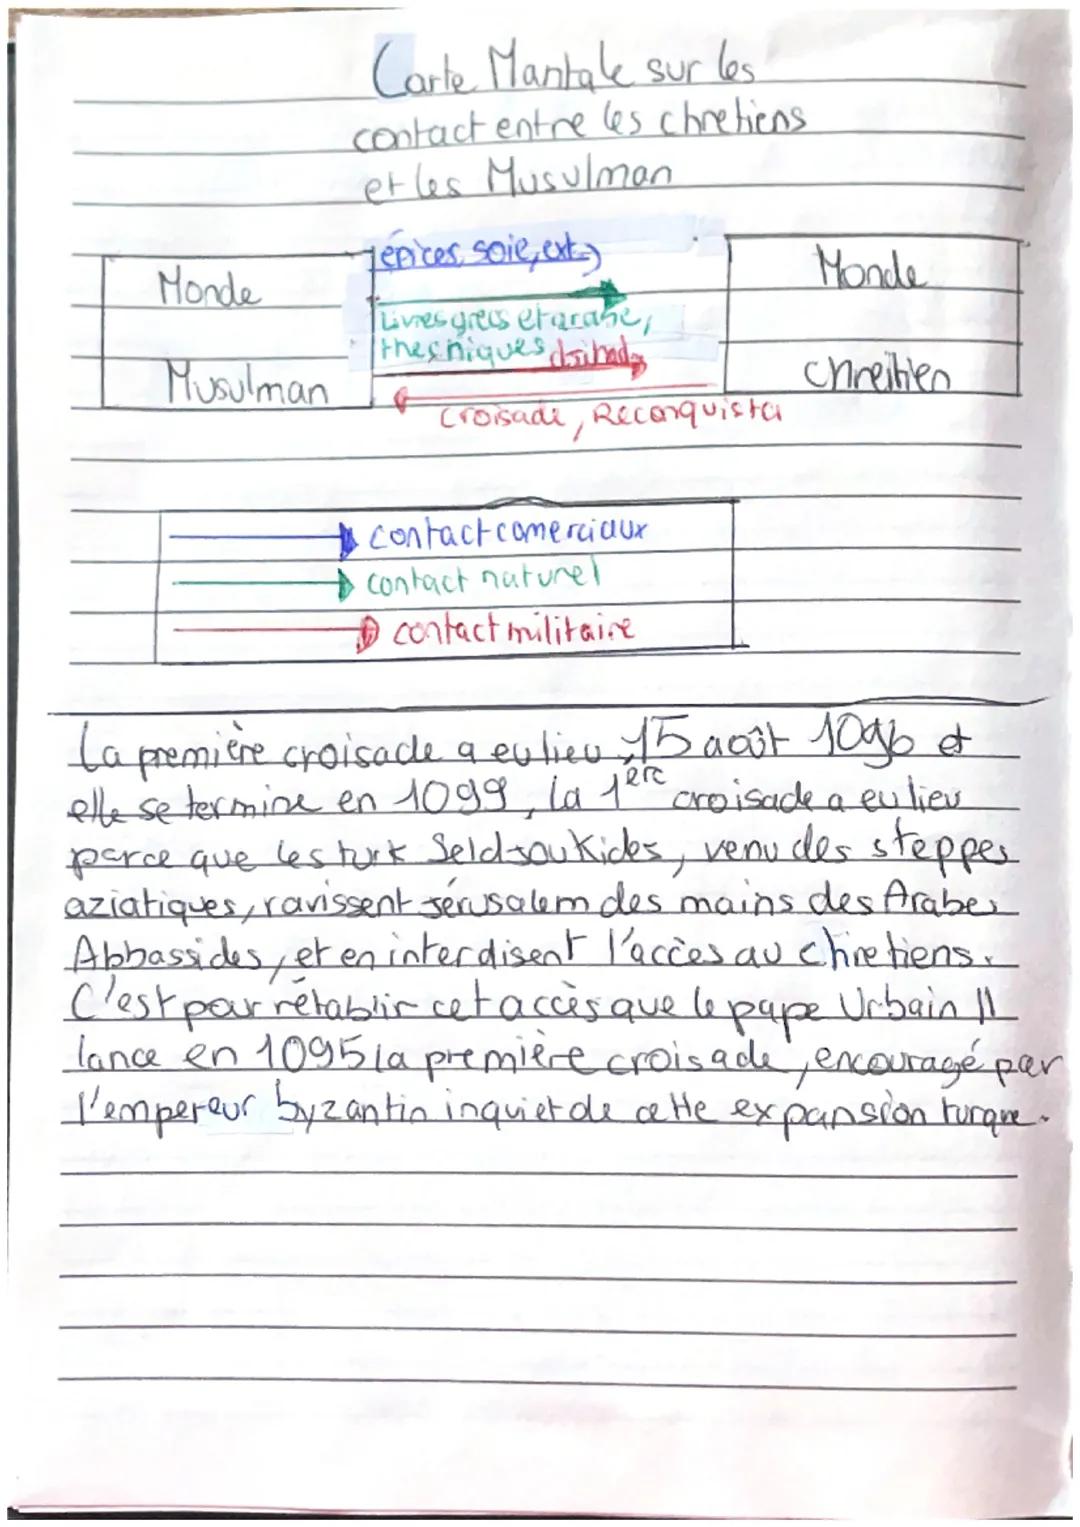 Carte Mantale sur les
contact entre les chretiens
et les Musulman
Monde
Musulman
épices, soie, ext.)
Livres grecs et arabe,
thechniques djihad
croisade, Reconquista
Monde
chreitien
contact comerciaux
contact naturel
contact militaire
La première croisade a eu lieu 15 août 1096 et
elle se termine en 1099, la 1ère croisade a eu lieu
parce que les turk Seldjoukides, venu des steppes
aziatiques, ravissent Jérusalem des mains des Arabes
Abbassides, et en interdisent l'accès au chretiens.
C'est pour rétablir cet accès que le pape Urbain II
lance en 1095 la première croisade, encouragé par
l'empereur byzantin inquiet de cette expansion turque.